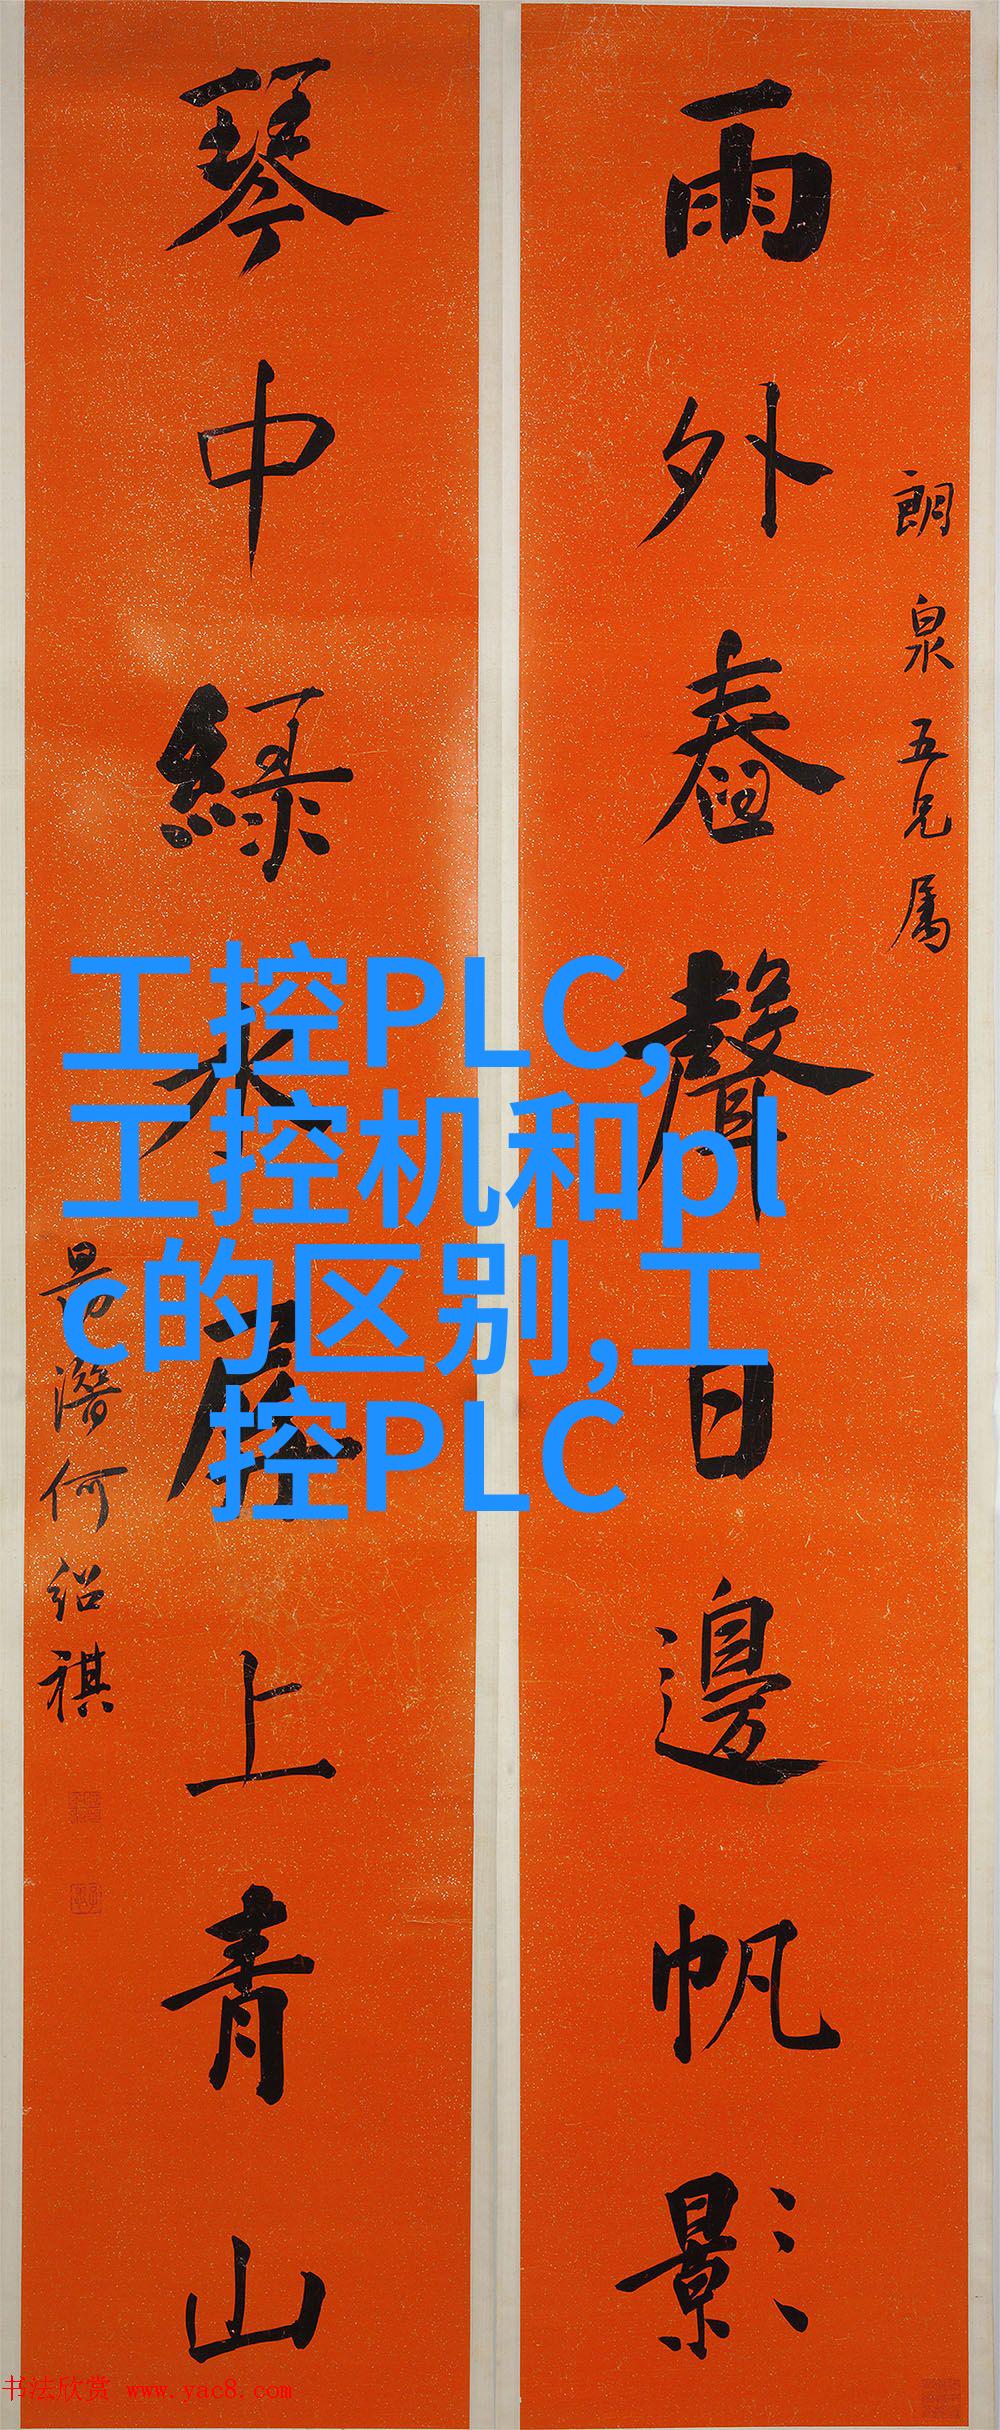 雨外舂聲日邊帆影
朗泉五兄属
琴中綠水屏上青山
勗潛何绍祺
工控PLC,
工控机和pl
c的区别,工
控PLC
书法欣赏 www.yac8.com